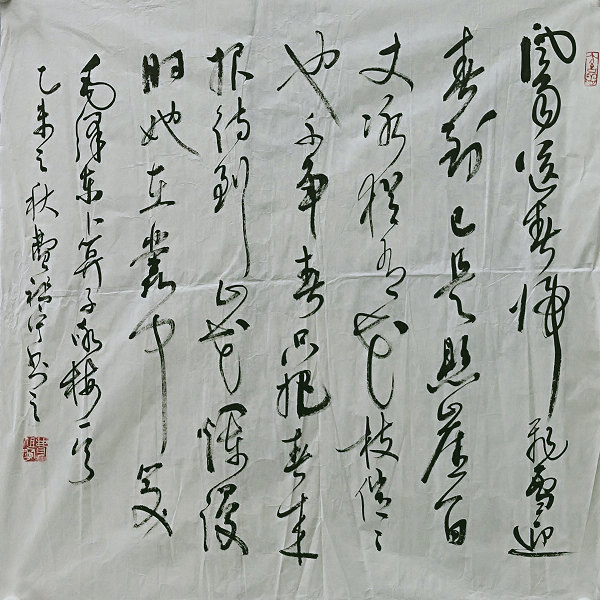 风雨送春归飞雪迎
春到已是悬崖百
丈冰犹有花枝俏〻
也不争春只把春来
报待到山花烂漫
时她在丛中笑
毛泽东卜算子咏梅一首
乙未之秋费书之